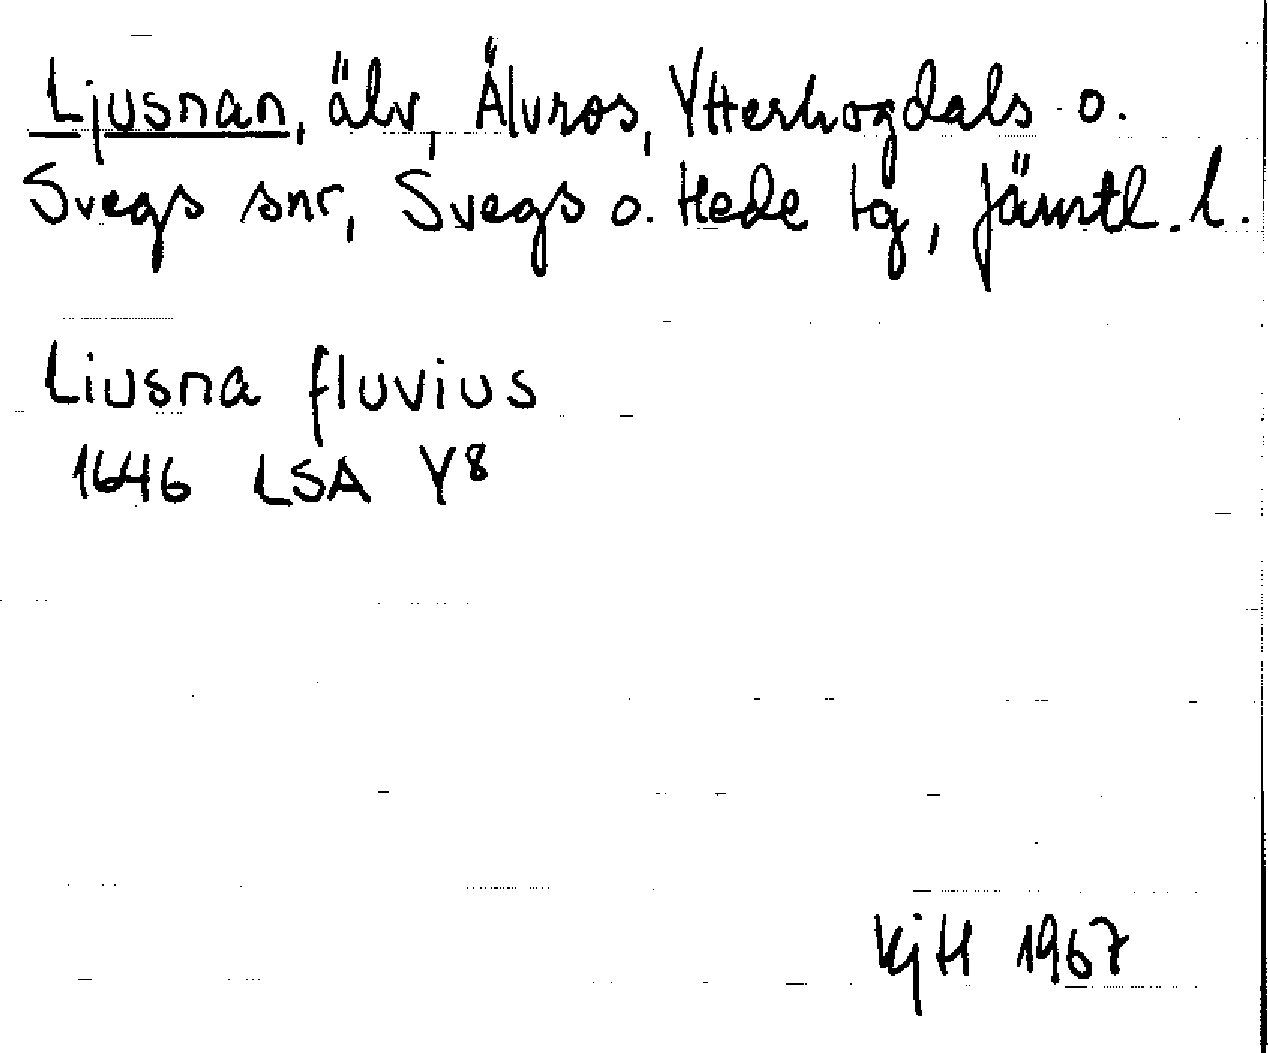 Ljusnan, älv, Älvros, Ytterhogdals o.
Svegs snr, Svegs o. Hede tg, Jämtl. l.
Liusna fluvius
1646 LSA Y8
KjH 1967